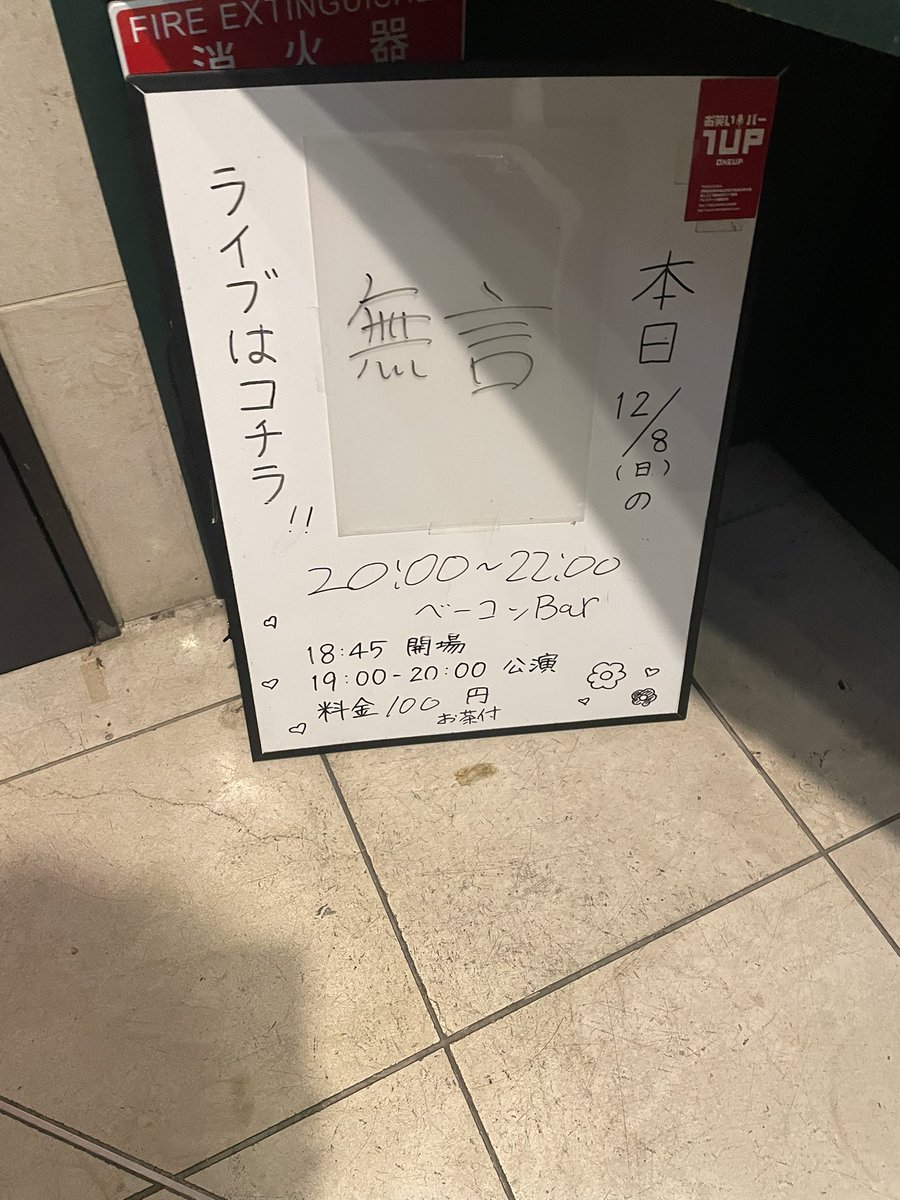 FIRE EXTINGUISHER
消火器
お笑いバー
1UP
ONEUP
本日
12/8
(日)
の
無言
ライブはコチラ!!
20:00~22:00
ベーコンBar
18:45 開場
19:00-20:00 公演
料金100円
お茶付